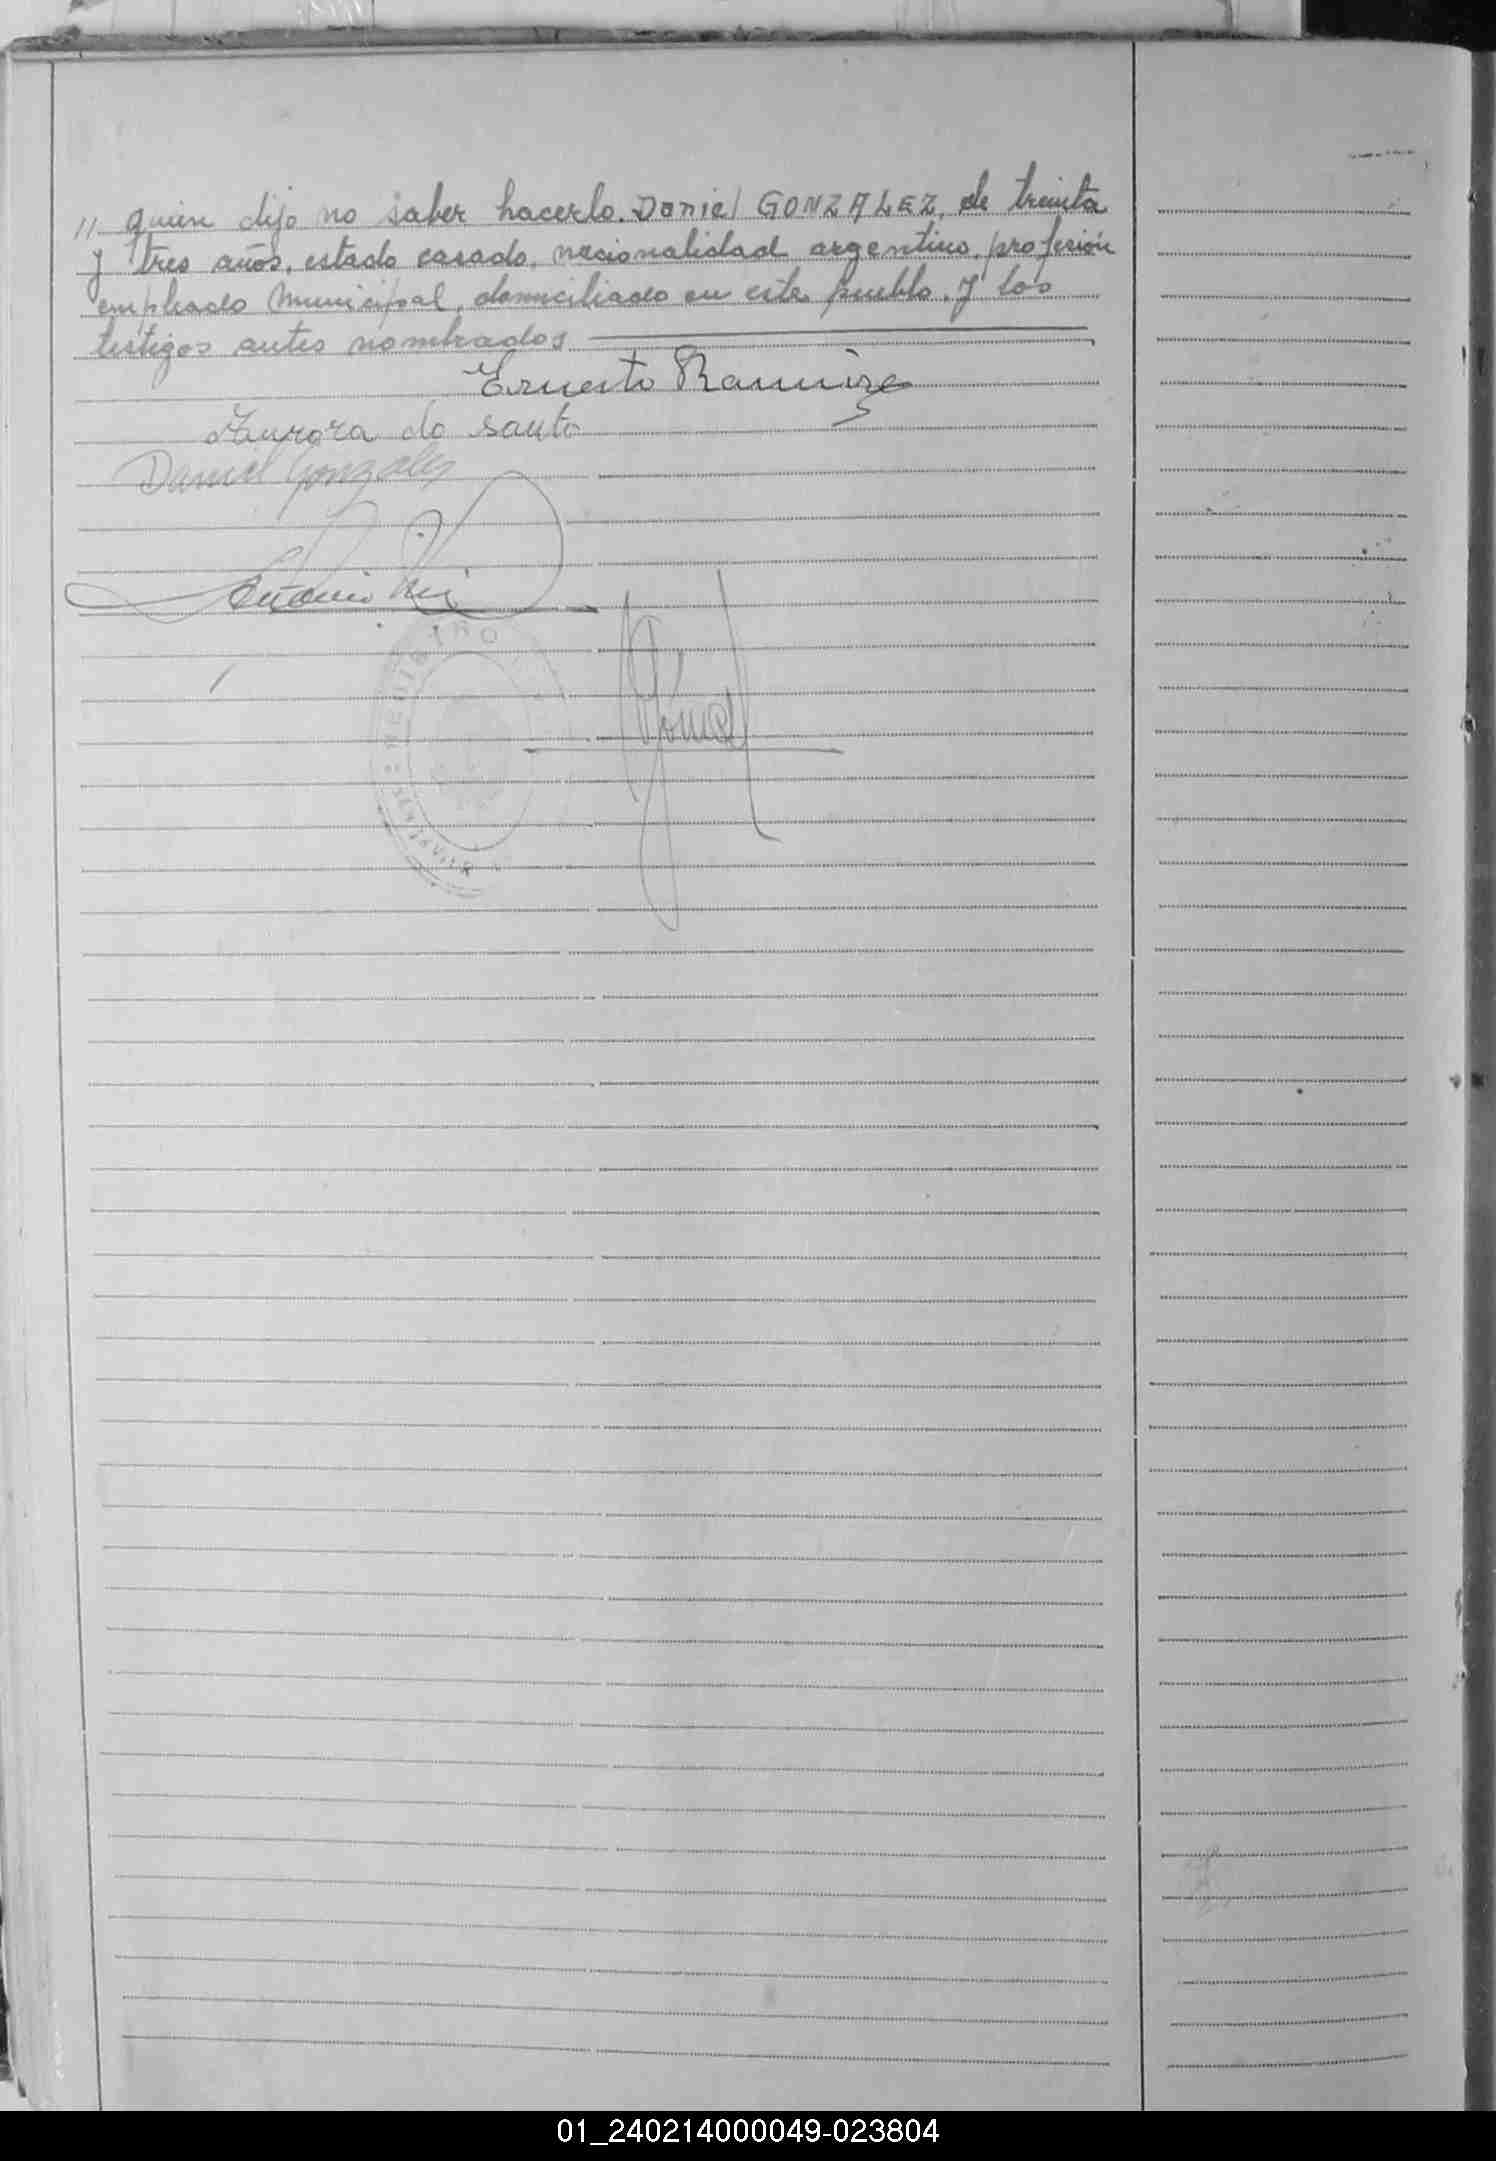 // quien dijo no saber hacerlo. Daniel GONZALEZ, de treinta
y tres años, estado casado, nacionalidad argentino, profesión
empleado Municipal, domiciliado en este pueblo. y los
testigos antes nombrados
Ernesto Ramirez
Aurora do santo
Daniel Gonzalez
Antonio
REGISTRO
01_240214000049-023804